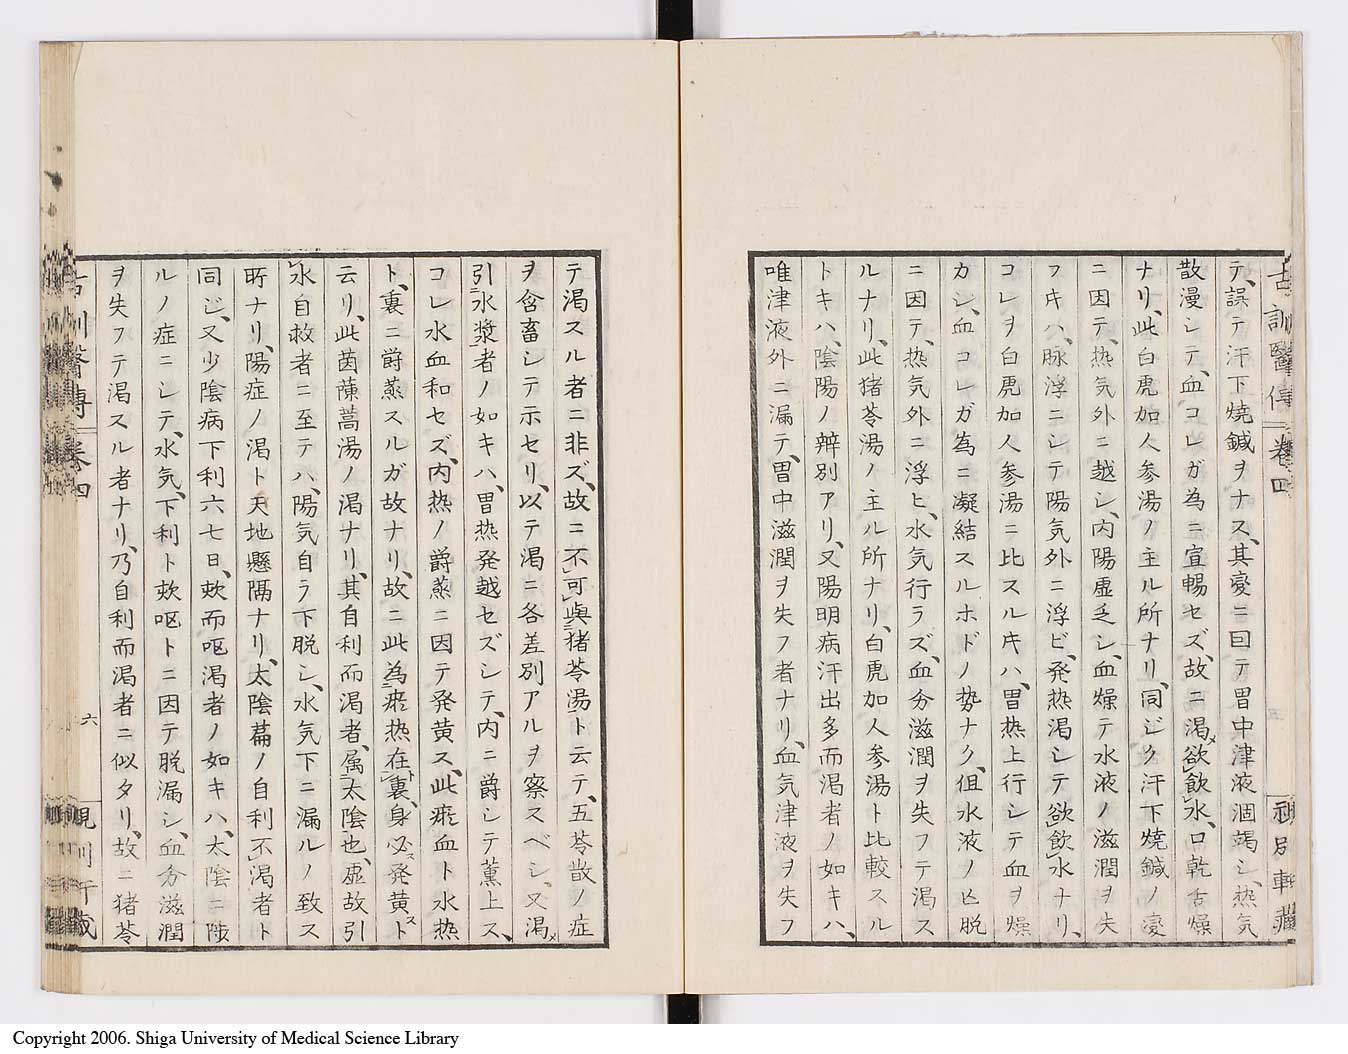 テ、誤テ汗下焼鍼ヲナス、其変ニ曰テ胃中津液涸竭シ、熱気
散漫シテ、血コレガ為ニ宣暢セズ、故ニ渇メ欲飲水、口乾舌燥
ナリ、此白虎加人参湯ノ主ル所ナリ、同ジク汗下焼鍼ノ変
ニ因テ、熱気外ニ越シ、内陽虚乏シ、血燥テ水液ノ滋潤ヲ失
フキハ、脉浮ニシテ陽気外ニ浮ビ、発熱渇シテ欲飲水ナリ、
コレヲ白虎加人参湯ニ比スルキハ、胃熱上行シテ血ヲ燥
カシ、血コレガ為ニ凝結スルホドノ勢ナク、但水液ノ亡脱
ニ因テ、熱気外ニ浮ヒ、水気行ラズ、血分滋潤ヲ失フテ渇ス
ルナリ、此猪苓湯ノ主ル所ナリ、白虎加人参湯ト比較スル
トキハ、陰陽ノ辨別アリ、又陽明病汗出多而渇者ノ如キハ、
唯津液外ニ漏テ、胃中滋潤ヲ失フ者ナリ、血気津液ヲ失フ
古訓醫傳 巻四
テ渇スル者ニ非ズ、故ニ不可與猪苓湯ト云テ、五苓散ノ症
ヲ含畜シテ示セリ、以テ渇ニ各差別アルヲ察スベシ、又渇メ
引水漿者ノ如キハ、胃熱発越セズシテ、内ニ爵シテ薫上ス、
コレ水血和セズ、内熱ノ爵蒸ニ因テ発黄ス、此瘀血ト水熱
ト、裏ニ爵蒸スルガ故ナリ、故ニ此為瘀熱在裏、身必発黄ト
云リ、此茵蔯蒿湯ノ渇ナリ、其自利而渇者、属太陰也、虚故引
水自救者ニ至テハ、陽気自ラ下脱シ、水気下ニ漏ルノ致ス
所ナリ、陽症ノ渇ト天地懸隔ナリ、太陰篇ノ自利不渇者ト
同ジ、又少陰病下利六七日、欬而呕渇者ノ如キハ、太陰ニ陟
ルノ症ニシテ、水気、下利ト欬呕トニ因テ脱漏シ、血分滋潤
ヲ失フテ渇スル者ナリ、乃自利而渇者ニ似タリ、故ニ猪苓
古訓醫傳 巻四
六